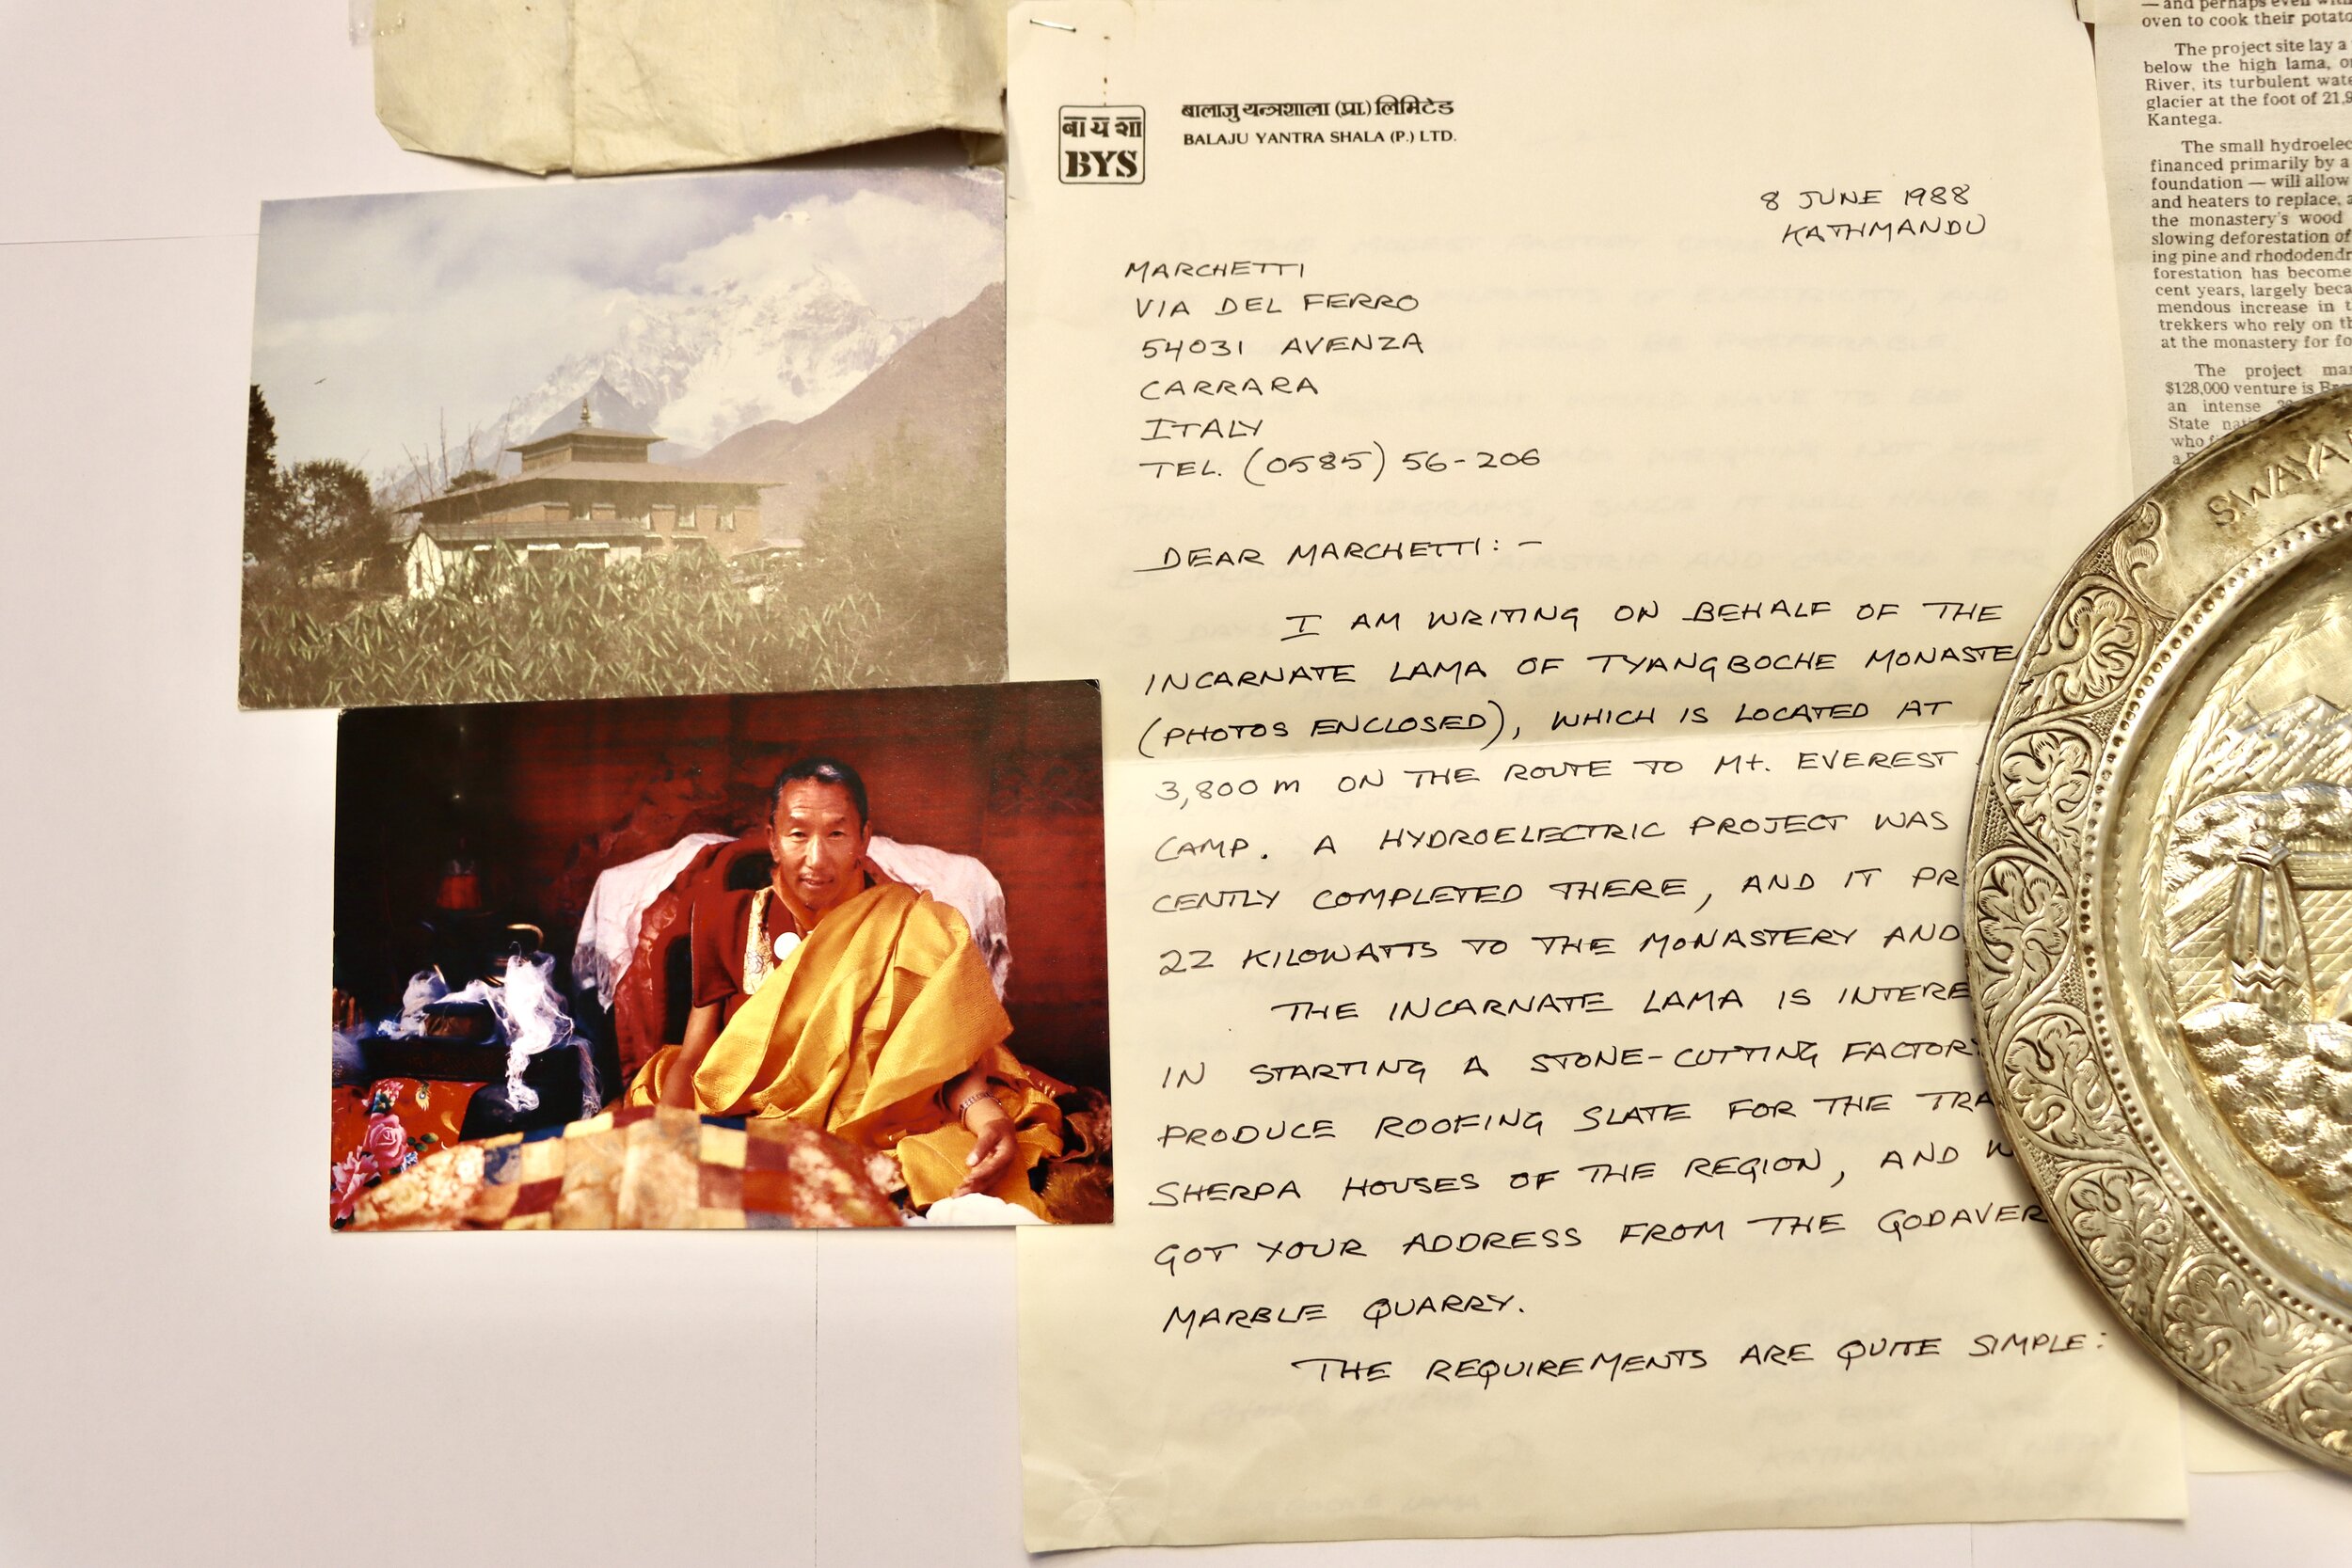 बा य शा
BYS
बालाजु यन्त्रशाला (प्रा.) लिमिटेड
BALAJU YANTRA SHALA (P.) LTD.
8 JUNE 1988
KATHMANDU
MARCHETTI
VIA DEL FERRO
54031 AVENZA
CARRARA
ITALY
TEL. (0585) 56-206
DEAR MARCHETTI: -
I AM WRITING ON BEHALF OF THE
INCARNATE LAMA OF TYANGBOCHE MONASTE
(PHOTOS ENCLOSED), WHICH IS LOCATED AT
3,800 m ON THE ROUTE TO Mt. EVEREST
CAMP. A HYDROELECTRIC PROJECT WAS
CENTLY COMPLETED THERE, AND IT PR
22 KILOWATTS TO THE MONASTERY AND
THE INCARNATE LAMA IS INTERE
IN STARTING A STONE-CUTTING FACTORY
PRODUCE ROOFING SLATE FOR THE TRA
SHERPA HOUSES OF THE REGION, AND W
GOT YOUR ADDRESS FROM THE GODAVER
MARBLE QUARRY.
THE REQUIREMENTS ARE QUITE SIMPLE:
— and perhaps even with
oven to cook their potato
The project site lay a
below the high lama, o
River, its turbulent wate
glacier at the foot of 21,9
Kantega.
The small hydroelec
financed primarily by a
foundation — will allow
and heaters to replace, a
the monastery's wood
slowing deforestation of
ing pine and rhododendr
forestation has become
cent years, largely beca
mendous increase in t
trekkers who rely on th
at the monastery for fo
The project man
$128,000 venture is Br
an intense
State nat
who
a
SWAYA